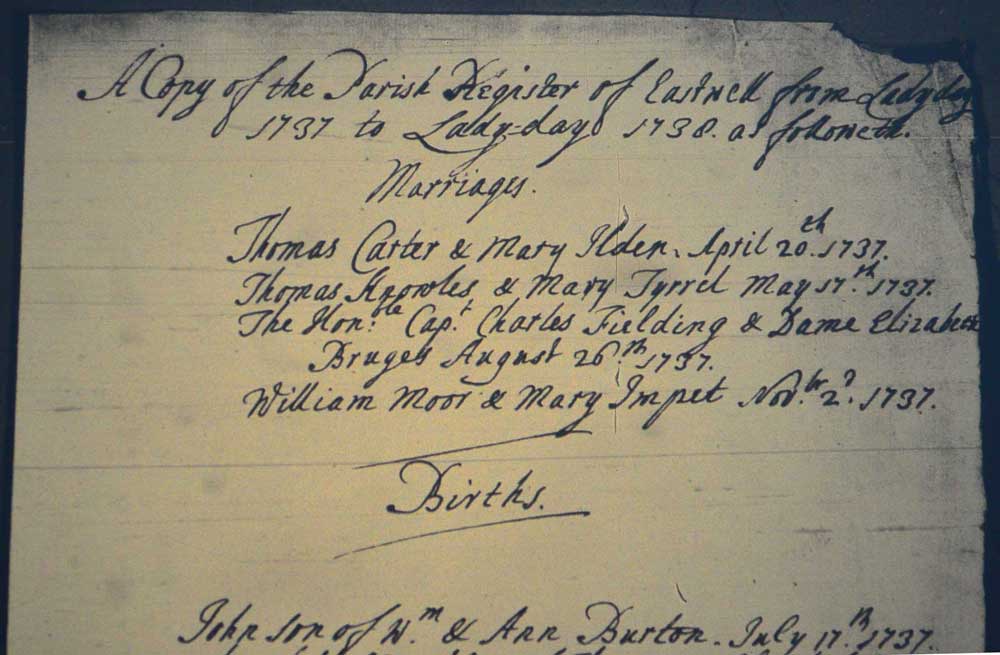 A Copy of the Parish Register of Eastwell from Ladyday
1737 to Lady-day 1738. as followeth.
Marriages.
Thomas Carter & Mary Ilden. April 20.th 1737.
Thomas Knowles & Mary Tyrrel May 17.th 1737.
The Hon:ble Cap.t Charles Fielding & Dame Elizabeth
Bruges August 26.th 1737.
William Moor & Mary Impet Nov.br 2.d 1737.
Births.
John son of W.m & Ann Burton. July 17.th 1737.